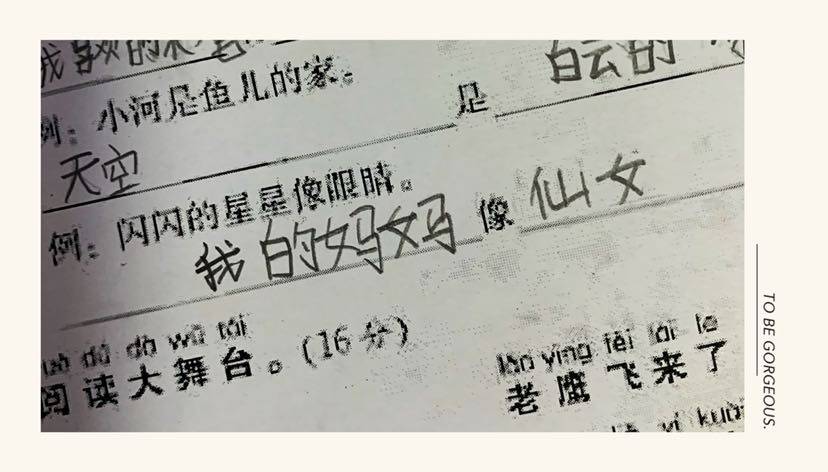 我 的
例：小河是鱼儿的家。
天空 是 白云的
例：闪闪的星星像眼睛。
我的妈妈 像 仙女
dú dà wǔ tái
阅读大舞台。(16分)
lǎo yīng fēi lái le
老鹰飞来了
TO BE GORGEOUS.